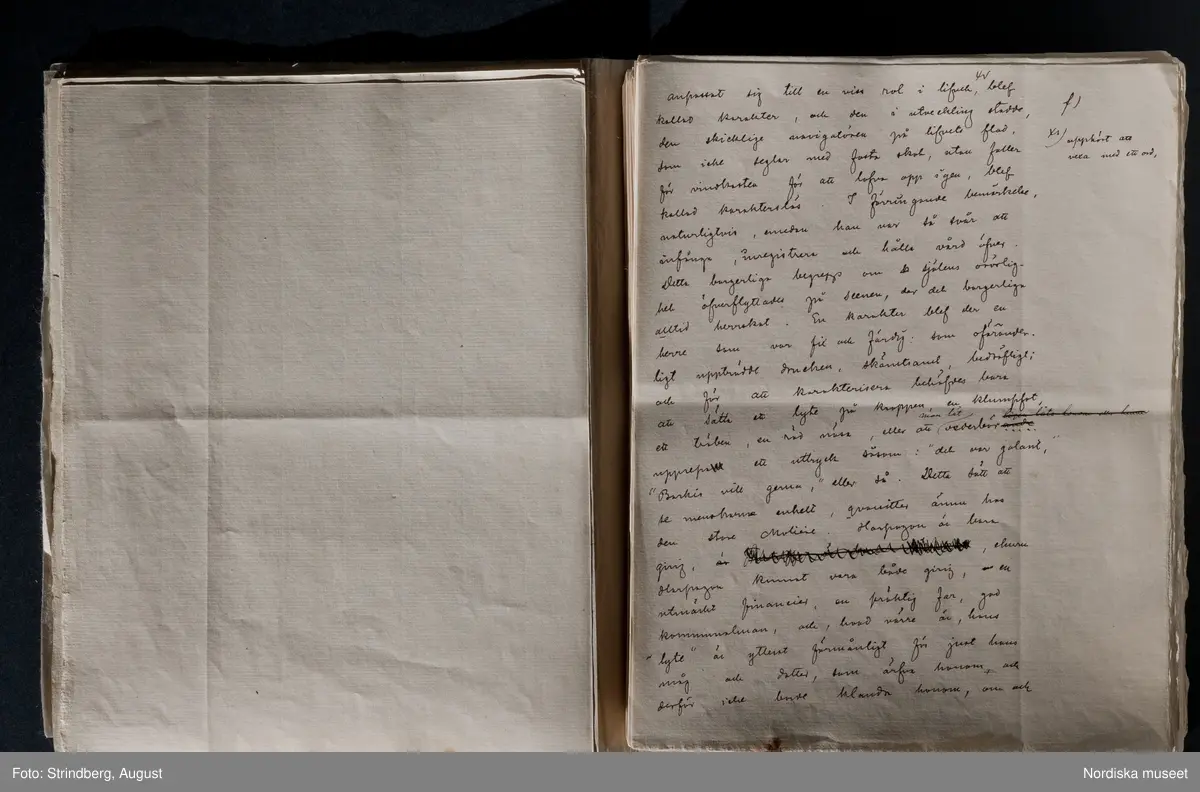 anpassat sig till en viss rol i lifvet, x) blef
kallad karakter, och den i utveckling stadde,
den skicklige navigatören på lifvets flod,
som icke seglar med fasta skot, utan faller
för vindkasten för att lofva opp igen, blef
kallad karakterslös. I förringande bemärkelse,
naturligtvis, emedan han var så svår att
infånga, inregistrera och hålla vård öfver.
Detta borgerliga begrepp om själens orörlig-
het öfverflyttades på scenen, der det borgerliga
alltid herrskat. En karakter blef der en
herre som var fix och färdig: som oföränder-
ligt uppträdde drucken, skämtsamt, bedröfligt;
och för att karakterisera behöfdes bara
att sätta ett lyte på kroppen, en klumpfot,
ett träben, en röd näsa, eller att man lät vederbörande
upprepa ett uttryck såsom: "det var galant,"
"Barkis vill gerna," eller så. Detta sätt att
se menskorna enkelt, qvarsitter ännu hos
den store Molière. Harpagon är bara
girig, ehuru
Harpagon kunnat vara både girig, en
utmärkt financier, en präktig far, god
kommunalman, och, hvad värre är, hans
"lyte" är ytterst förmånligt för just hans
måg och dotter, som ärfva honom, och
derför icke borde klandra honom, om och
f)
x) upphört att
vexa med ett ord,
Foto: Strindberg, August
Nordiska museet